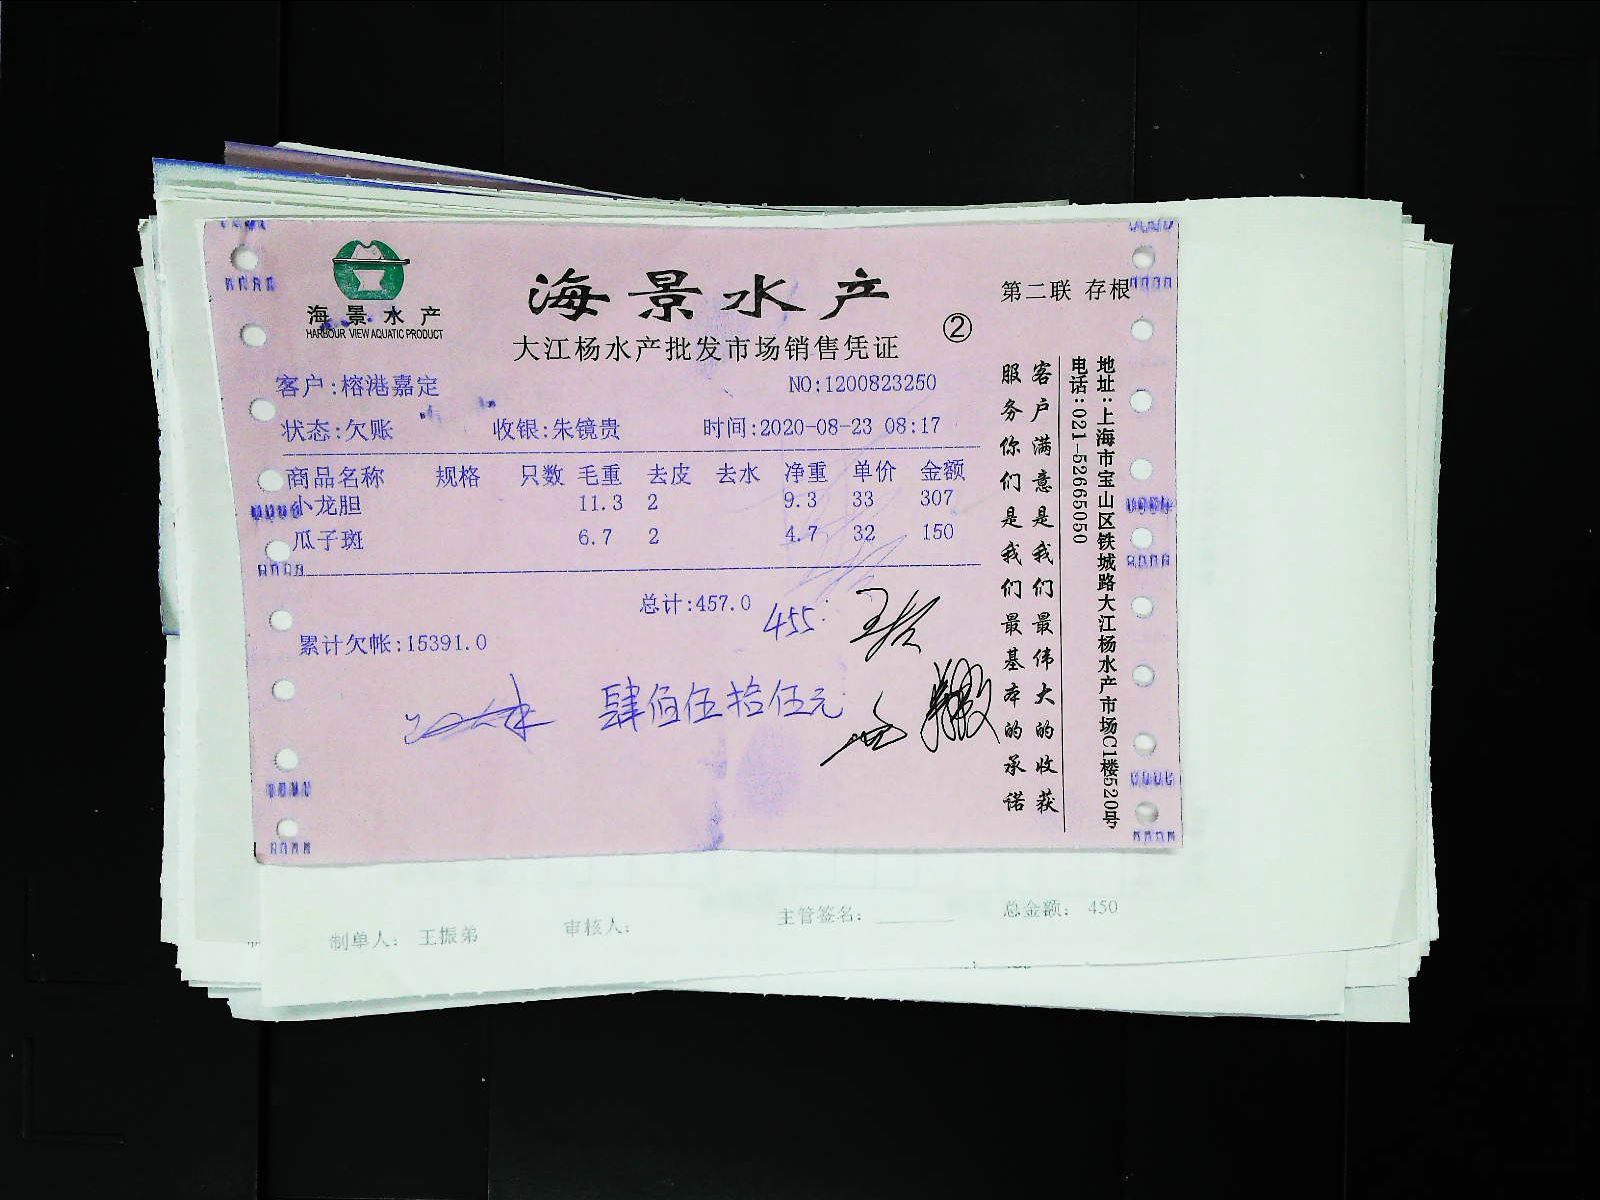 海景水产
HARBOUR VIEW AQUATIC PRODUCT
海景水产
大江杨水产批发市场销售凭证
②
第二联 存根
客户:榕港嘉定 NO:1200823250
状态:欠账 收银:朱镜贵 时间:2020-08-23 08:17
商品名称 规格 只数 毛重 去皮 去水 净重 单价 金额
小龙胆 11.3 2 9.3 33 307
瓜子斑 6.7 2 4.7 32 150
总计:457.0
455
累计欠帐:15391.0
肆佰伍拾伍元
客户满意是我们最伟大的收获
服务你们是我们最基本的承诺
地址:上海市宝山区铁城路大江杨水产市场C1楼520号
电话:021-52665050
制单人: 王振弟 审核人: 主管签名: 总金额: 450